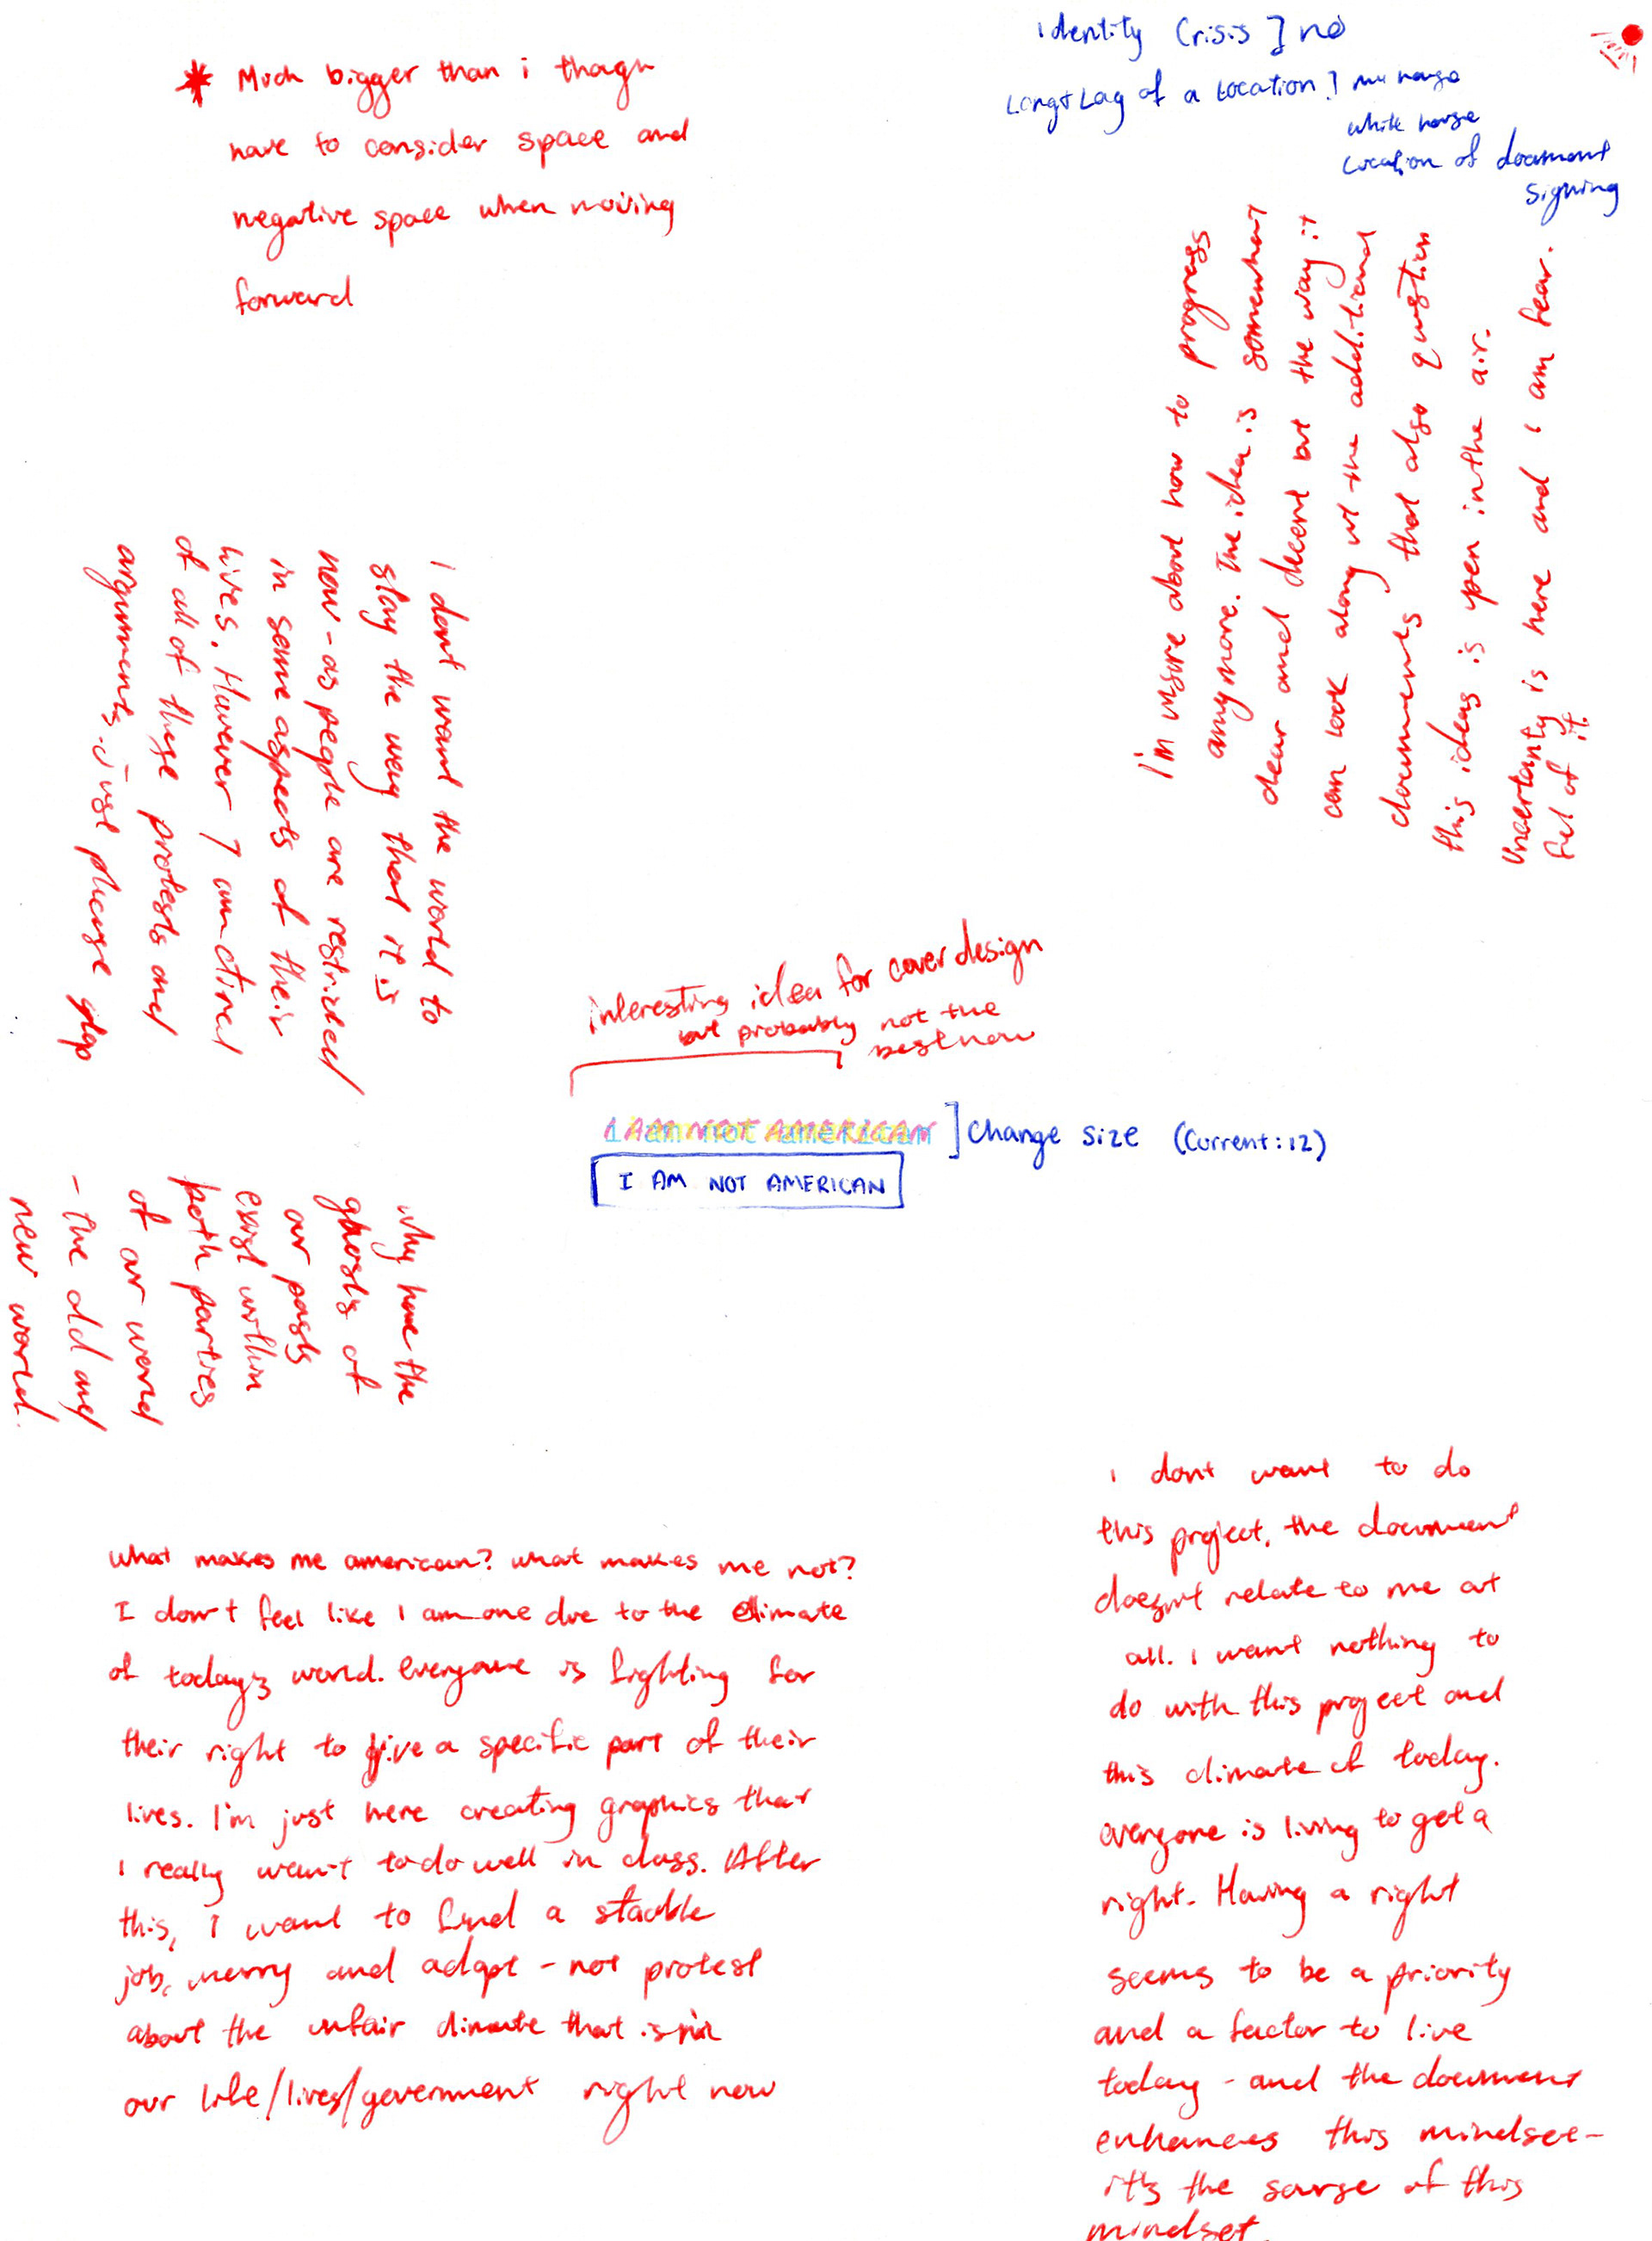 Identity Crisis ] no
Long + Lag of a location ] my house
white house
location of document
signing
* Much bigger than i though
have to consider space and
negative space when moving
forward
I'm unsure about how to progress
anymore. The idea is somewhat
clear and decent but the way it
can look along w/ the additional
documents that also question
this ideas is open in the air.
Uncertanty is here and i am fear.
ful of it.
i dont want the world to
stay the way that it is
now - as people are restricted
in some aspects of their
lives. However I am tired
of all of these protests and
arguments. Just please stop
interesting idea for cover design
but probably not the
best now
i am not american
I AM NOT AMERICAN
] Change size (Current: 12)
I AM NOT AMERICAN
why have the
ghosts of
our pasts
exist within
both parties
of our world
- the old and
new world.
what makes me american? what makes me not?
I don't feel like i am one due to the climate
of todays world. everyone is fighting for
their right to live a specific part of their
lives. I'm just here creating graphics that
i really want to do well in class. After
this, I want to find a stable
job, merry and adapt - not protest
about the unfair climate that is in
our life/lives/goverment right now
i dont want to do
this project, the document
doesn't relate to me at
all. i want nothing to
do with this project and
this climate of today.
everyone is living to get a
right. Having a right
seems to be a priority
and a factor to live
today - and the document
enhances this mindset -
it's the sourse of this
mindset.